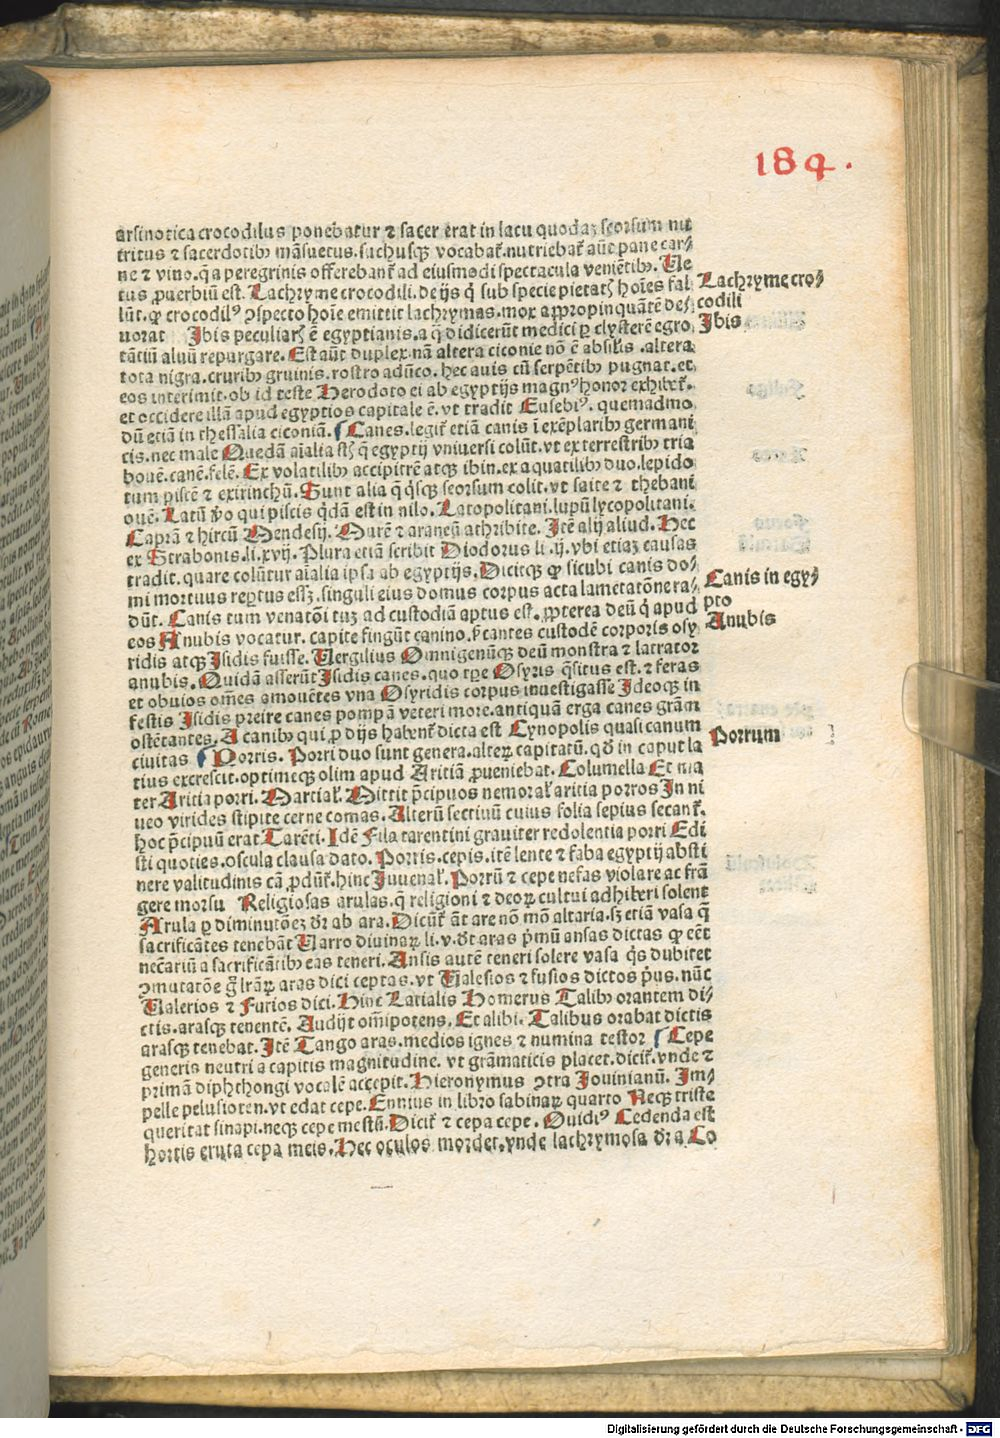 184.
arsinotica crocodilus ponebatur ⁊ sacer erat in lacu quodaꝫ seorsum nu
tritus ⁊ sacerdotibꝫ mãsuetus. suchusqꝫ vocabat̃. nutriebat̃ aũt pane car⸗
ne ⁊ vino. q̃ a peregrinis offerebant̃ ad eiusmodi spectacula veniẽtibꝫ. Ve
tus ꝓuerbiũ est. Lachryme crocodili. de ijs q̃ sub specie pietatꝭ hoĩes fal
lũt. qꝛ crocodilꝰ ꝯspecto hoĩe emittit lachrymas. mox appropinquãtẽ de⸗
uorat Ibis peculiarꝭ ẽ egyptianis. a q̃ didicerũt medici ꝑ clysterẽ egro
tãtiũ aluũ repurgare. Est aũt duplex. nã altera ciconie nõ ẽ absil̃is. altera
tota nigra. cruribꝫ gruinis. rostro adũco. hec auis cũ serpẽtibꝫ pugnat. et
eos interimit. ob id teste Herodoto ei ab egyptijs magnꝰ honor exhibet̃.
et occidere illã apud egyptios capitale ẽ. vt tradit Eusebiꝰ. quemadmo
dũ etiã in thessalia ciconiã. Canes. legit̃ etiã canis ĩ exẽplaribꝫ germani
cis. nec male Quedã aĩalia sꝫ q̃ egyptij vniuersi colũt. vt ex terrestribꝫ tria
bouẽ. canẽ. felẽ. Ex volatilibꝫ accipitrẽ atqꝫ ibin. ex aquatilibꝫ duo. lepido
tum piscẽ ⁊ exirinchũ. Sunt alia q̃ q̃sqꝫ seorsum colit. vt saite ⁊ thebani
ouẽ. Latũ ṽo qui piscis q̃dã est in nilo. Latopolitani. lupũ lycopolitani.
Caprã ⁊ hircũ Mendesij. Murẽ ⁊ araneũ athribite. Itẽ alij aliud. Hec
ex Strabonis. li. xvij. Plura etiã scribit Diodorus li .ij. vbi etiaꝫ causas
tradit. quare colũtur aĩalia ipsa ab egyptijs. Dicitqꝫ qꝛ sicubi canis do⸗
mi mortuus repꝑtus essꝫ. singuli eius domus corpus acta lametatõne ra⸗
dũt. Canis tum venatõi tuꝫ ad custodiã aptus est. ꝓpterea deũ q̃ apud
eos Anubis vocatur. capite fingũt canino. p̃cantes custodẽ corporis osy
ridis atqꝫ Isidis fuisse. Vergilius Omnigenũqꝫ deũ monstra ⁊ latrator
anubis. Quidã asserũt Isidis canes. quo tꝑe Osyris q̃situs est. ⁊ feras
et obuios oĩmes amouẽtes vna Osyridis corpus inuestigasse Ideoqꝫ in
festis Isidis preire canes pompã veteri more. antiquã erga canes gratiam
ostẽtantes. A canibꝫ qui ꝓ dijs habent̃ dicta est Cynopolis quasi canum
ciuitas Porris. Porri duo sunt genera. alteꝝ capitatũ. qđ in caput la
tius excrescit. optimeqꝫ olim apud Aritiã ꝓueniebat. Columella Et ma
ter Aritia porri. Martial̃. Mittit p̃cipuos nemoral̃ aritia porros In ni
ueo virides stipite cerne comas. Alterũ sectiuũ cuius folia sepius secant̃.
hoc p̃cipuũ erat Tarẽti. Idẽ Fila tarentini grauiter redolentia porri Edi
sti quoties. oscula clausa dato. Porris. cepis. itẽ lente ⁊ faba egyptij absti
nere valitudinis cã ꝓdũt̃. hinc Juuenal̃. Porrũ ⁊ cepe nefas violare ac frã
gere morsu Religiosas arulas. q̃ religioni ⁊ deoꝝ cultui adhiberi solent
Arula ꝑ diminutõeꝫ dr̃ ab ara. Dicũt̃ aũt are nõ mõ altaria. sꝫ etiã vasa q̃
sacrificãtes tenebãt Varro diuinaꝝ li. v. dr̃t aras p̃mũ ansas dictas qꝛ eẽt
necẽariũ a sacrificãtibꝫ eas teneri. Ansis autẽ teneri solere vasa q̃s dubitet
ꝯmutatõe ḡ l̃raꝝ aras dici ceptas. vt Valesios ⁊ fusios dictos p̃us. nũc
Valerios ⁊ Furios dici. Hinc Latialis Homerus Talibꝫ orantem di⸗
ctis. arasqꝫ tenentẽ. Audijt om̃ipotens. Et alibi. Talibus orabat dictis
arasqꝫ tenebat. Itẽ Tango aras. medios ignes ⁊ numina testor Cepe
generis neutri a capitis magnitudine. vt grãmaticis placet. dicit̃. vnde ⁊
primam diphthongi vocalẽ accepit. Hieronymus ꝯtra Jouinianũ. Im⸗
pelle pelusioten. vt edat cepe. Ennius in libro sabinaꝝ quarto Neqꝫ triste
queritat sinapi. neqꝫ cepe mestũ. Dicit̃ ⁊ cepa cepe. Ouidiꝰ Cedenda est
hortis eruta cepa meis. Hec oculos mordet. vnde lachrymosa dr̃ a Co
Lachryme cro⸗
codili
Ibis
Canis in egy⸗
pto
Anubis
Porrum
Digitalisierung gefördert durch die Deutsche Forschungsgemeinschaft - DFG